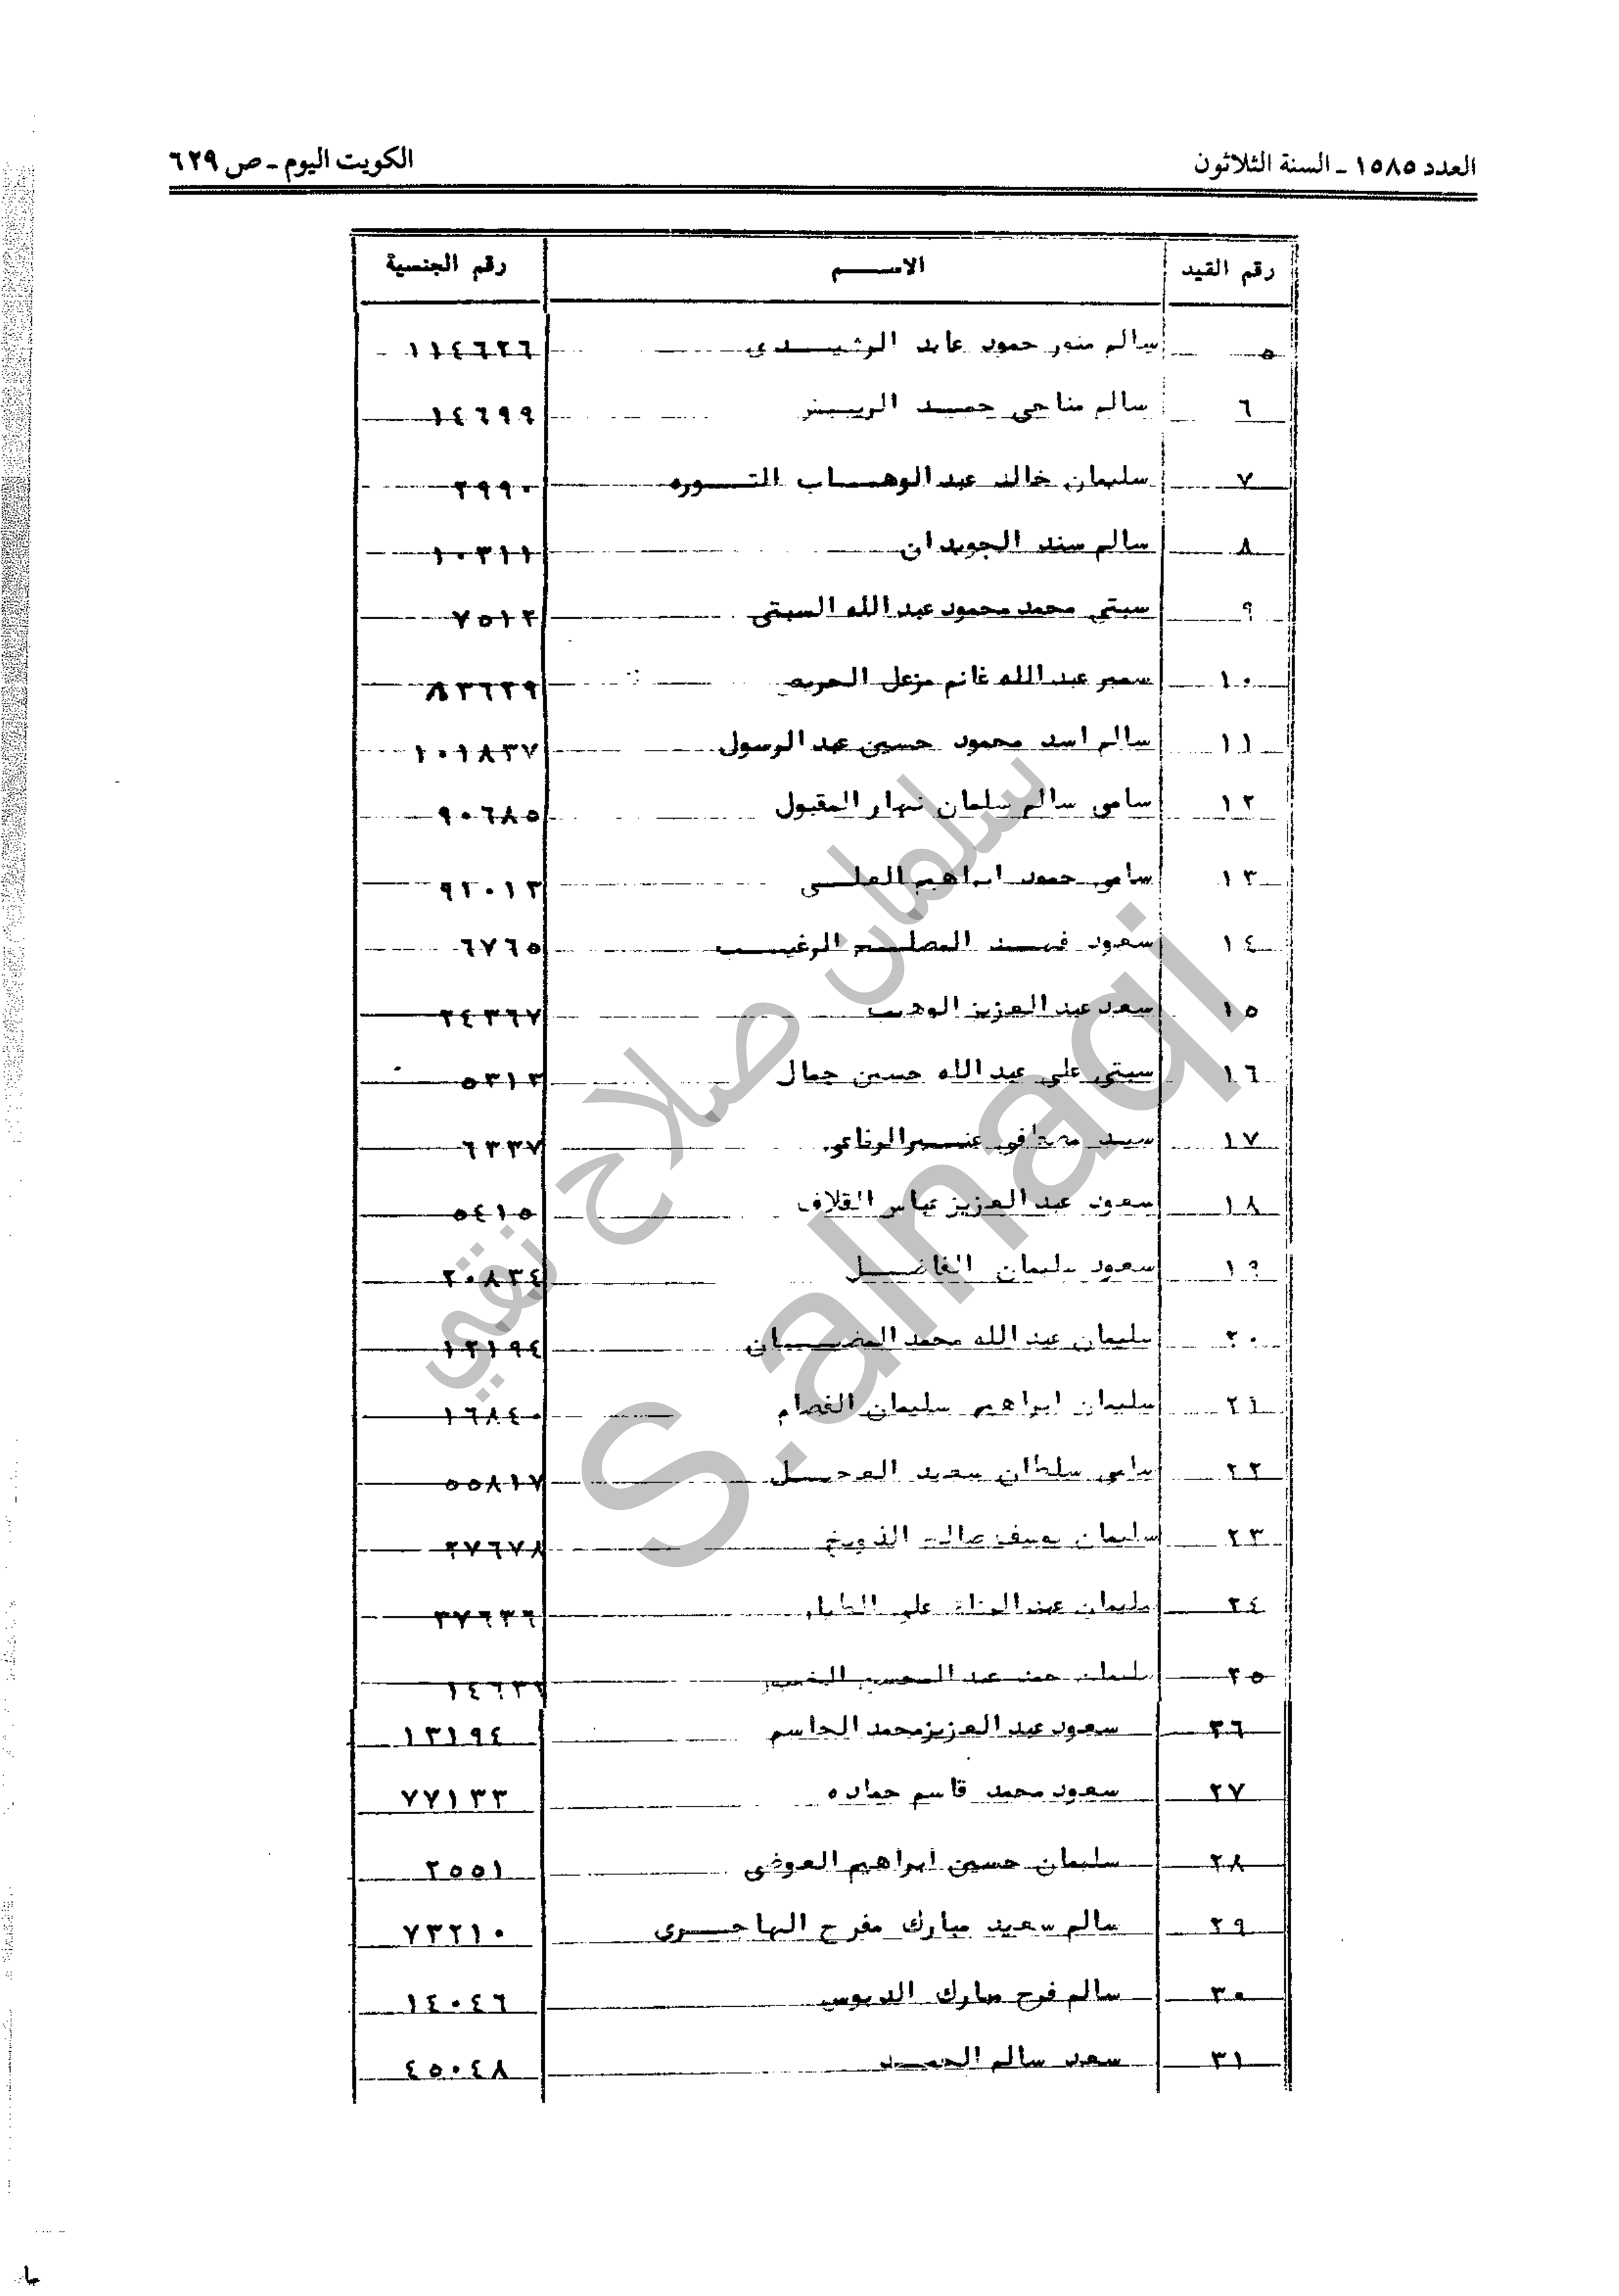 العدد ١٥٨٥ ـ السنة الثلاثون
الكويت اليوم ـ ص ٦٢٩
رقم القيد الاســـم رقم الجنسية
٥ سالم منور حمود عايد الرشيــدى ١١٤٦٢٦
٦ سالم مناحى حمــد ١٤٦٩٩
٧ سليمان خالد عبد الوهــاب التــوره ٢٩٩٠
٨ سالم سند الجويدان ١٠٣١١
٩ سبتى محمد محمود عبد الله السبتى ٧٥١٢
١٠ سمير عبد الله غانم مزعل ٨٣٦٢٩
١١ سالم اسد محمود حسين عبد الرسول ١٠١٨٣٧
١٢ سامى سالم سلمان نهار المقبول ٩٠٦٨٥
١٣ سامى حمود ابراهيم العلــى ٩٢٠١٣
١٤ سعود فهــد المصلــح الرغيــب ٦٧٦٥
١٥ سعد عبد العزيز الوهيب ٢٤٣٦٧
١٦ سبتى على عبد الله حسين جمال ٥٣١٣
١٧ سيــد مصطفى الرفاعى ٦٣٣٧
١٨ سعود عبد العزيز عباس القلاف ٥٤١٥
١٩ سعود سليمان الفاضــل ٢٠٨٣٤
٢٠ سليمان عبد الله محمد ١٢١٩٤
٢١ سليمان ابراهيم سليمان الغصام ١٦٨٤٠
٢٢ سامى سلطان سعيد ٥٥٨١٧
٢٣ سليمان يوسف صالح الذويخ ٢٧٦٧٨
٢٤ سليمان على ٣٧٦٣٦
٢٥ سليمان عبد المحسن
٢٦ سعود عبد العزيز محمد الجاسم ١٣١٩٤
٢٧ سعود محمد قاسم حماده ٧٧١٣٣
٢٨ سليمان حسين ابراهيم العوضى ٢٥٥١
٢٩ سالم سعيد مبارك مفرح الهاجــرى ٧٣٢١٠
٣٠ سالم فرج مبارك الدبوس ١٤٠٤٦
٣١ سعد سالم الحمــد ٤٥٠٤٨
سلمان صلاح نقي
S.alnaqi